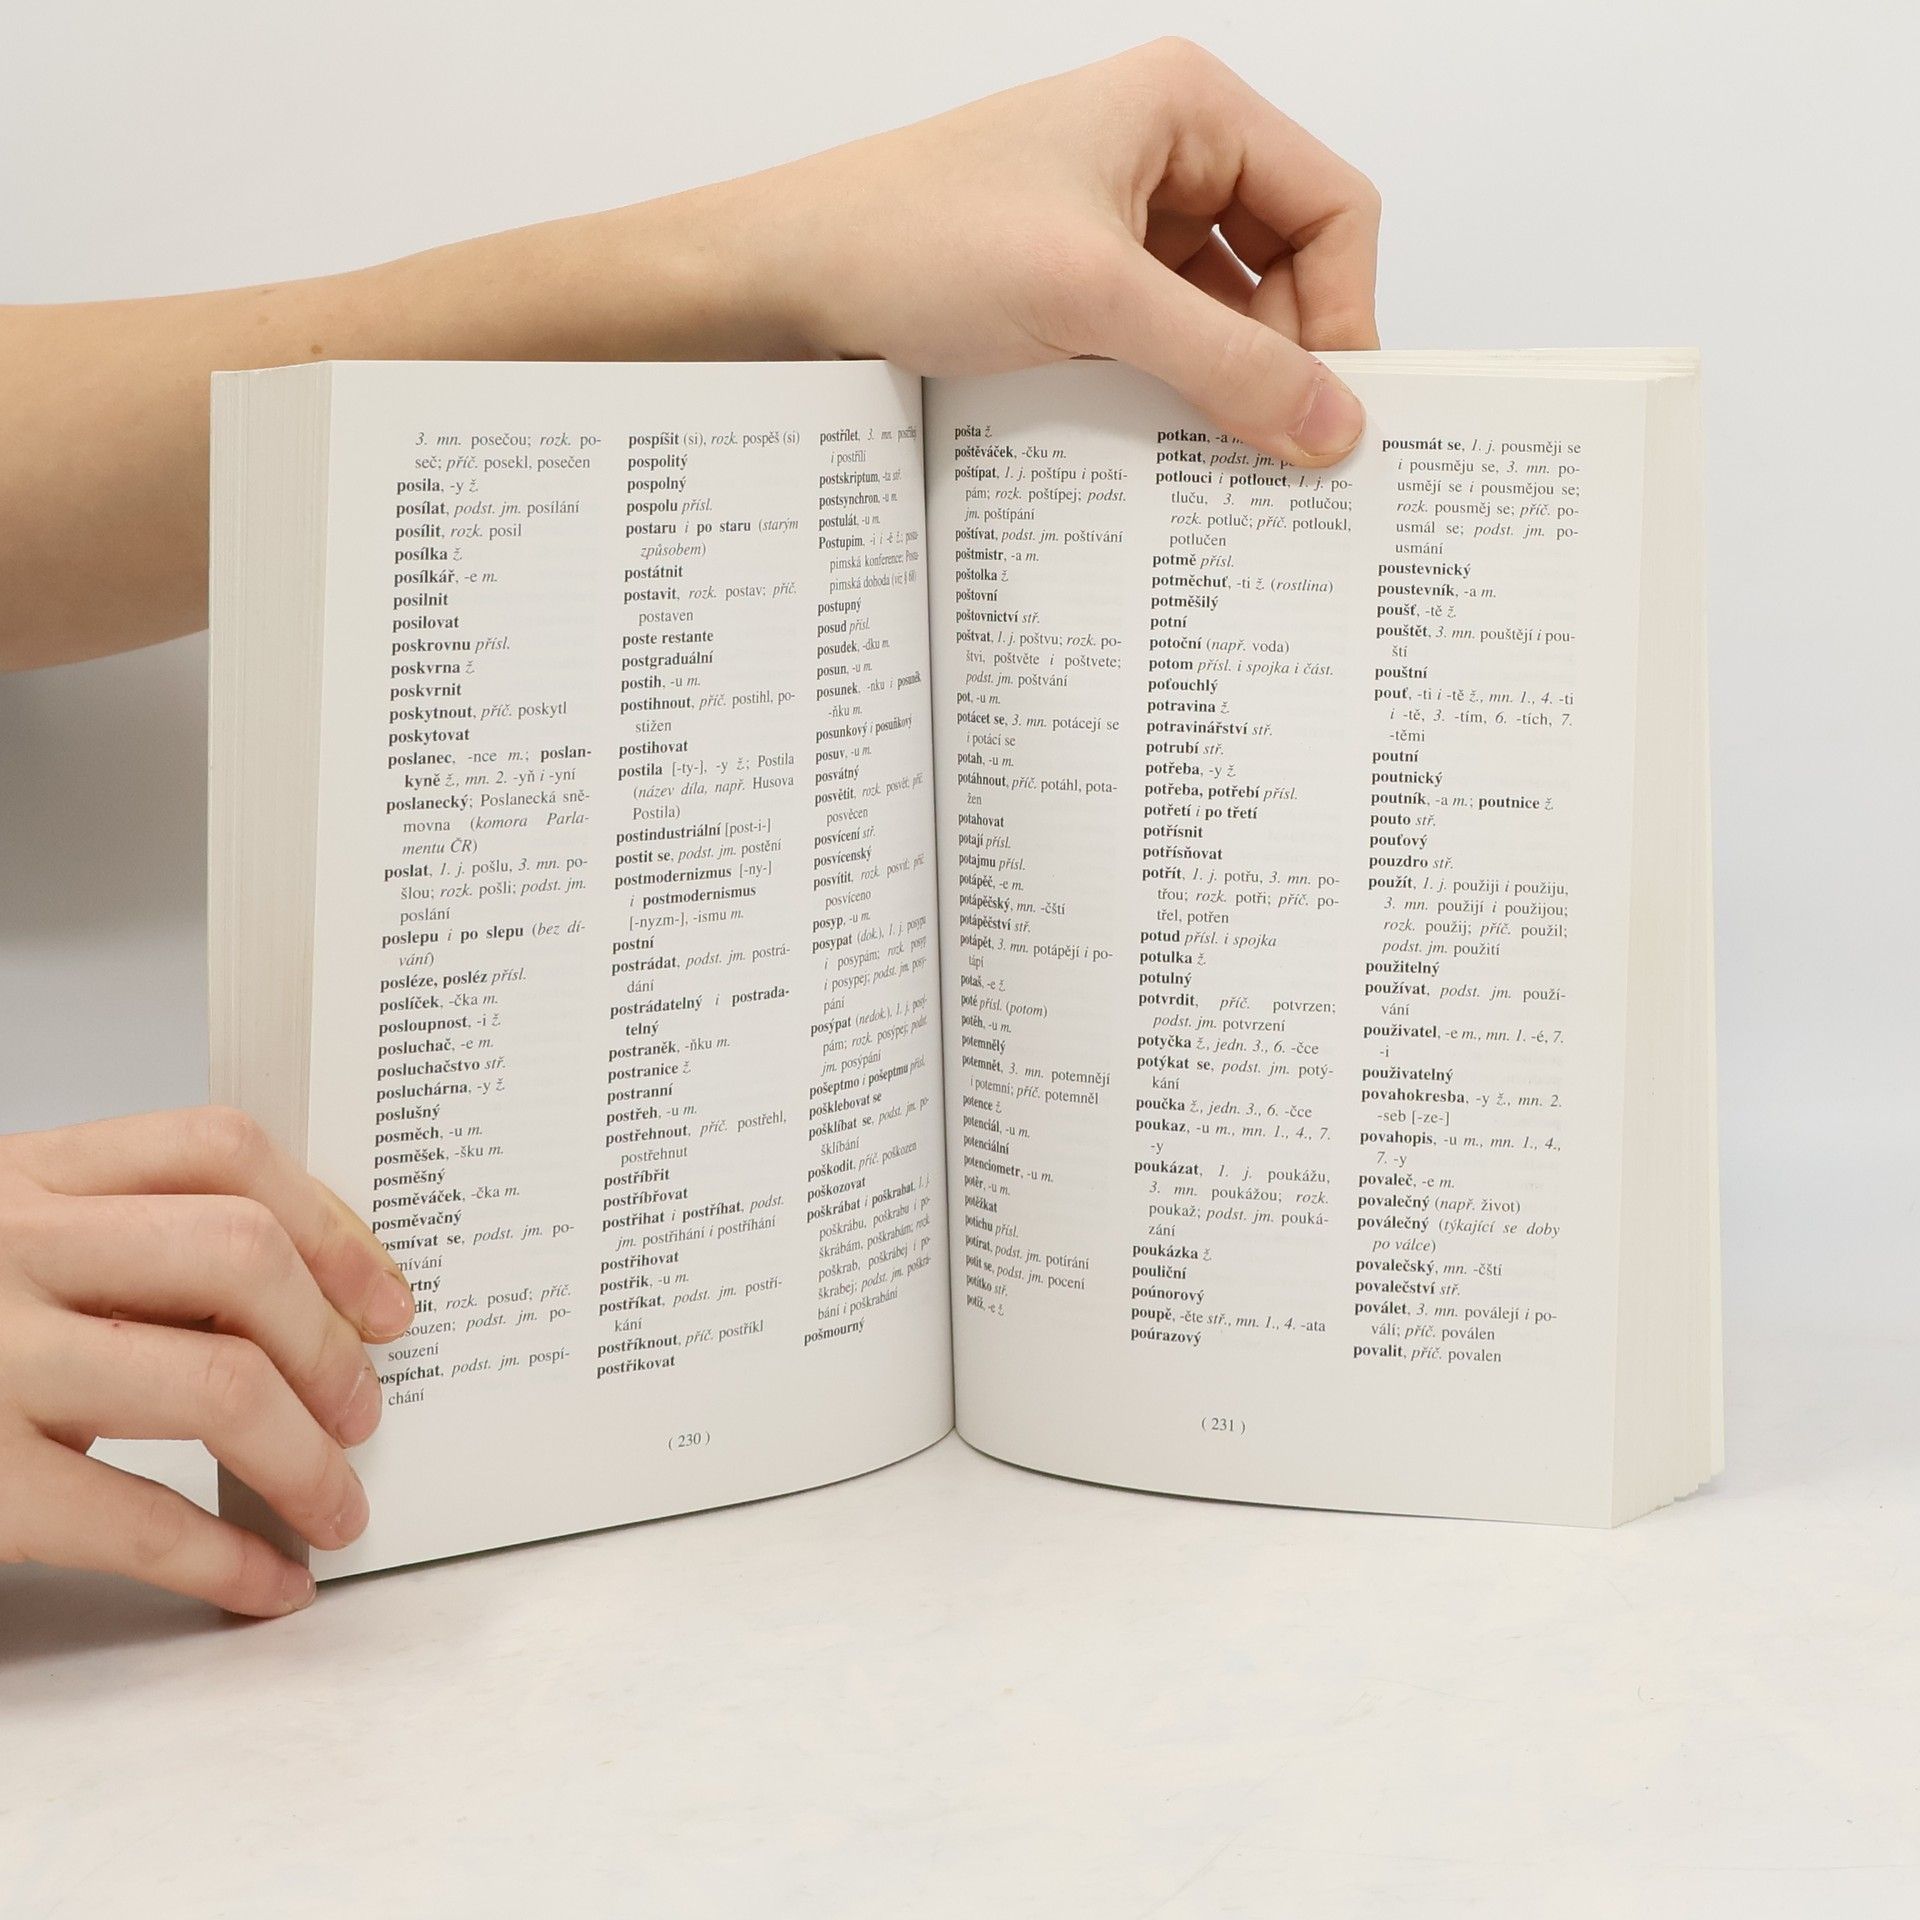 3. mn. posečou; rozk. po-
seč; příč. posekl, posečen
posila, -y ž.
posílat, podst. jm. posílání
posílit, rozk. posil
posílka ž.
posílkář, -e m.
posilnit
posilovat
poskrovnu přísl.
poskvrna ž.
poskvrnit
poskytnout, příč. poskytl
poskytovat
poslanec, -nce m.; poslan-
kyně ž., mn. 2. -yň i -yní
poslanecký; Poslanecká sně-
movna (komora Parla-
mentu ČR)
poslat, 1. j. pošlu, 3. mn. po-
šlou; rozk. pošli; podst. jm.
poslání
poslepu i po slepu (bez dí-
vání)
posléze, posléz přísl.
poslíček, -čka m.
posloupnost, -i ž.
posluchač, -e m.
posluchačstvo stř.
posluchárna, -y ž.
poslušný
posměch, -u m.
posměšek, -šku m.
posměšný
posměváček, -čka m.
posměvačný
osmívat se, podst. jm. po-
mívání
rtný
dit, rozk. posuď; příč.
souzen; podst. jm. po-
souzení
ospíchat, podst. jm. pospí-
chání
pospíšit (si), rozk. pospěš (si)
pospolitý
pospolný
pospolu přísl.
postaru i po staru (starým
způsobem)
postátnit
postavit, rozk. postav; příč.
postaven
poste restante
postgraduální
postih, -u m.
postihnout, příč. postihl, po-
stižen
postihovat
postila [-ty-], -y ž.; Postila
(název díla, např. Husova
Postila)
postindustriální [post-i-]
postit se, podst. jm. postění
postmodernizmus [-ny-]
i postmodernismus
[-nyzm-], -ismu m.
postní
postrádat, podst. jm. postrá-
dání
postrádatelný i postrada-
telný
postraněk, -ňku m.
postranice ž.
postranní
postřeh, -u m.
postřehnout, příč. postřehl,
postřehnut
postříbřit
postříbřovat
postříhat i postříhat, podst.
jm. postříhání i postříhání
postřihovat
postřik, -u m.
postříkat, podst. jm. postří-
kání
postříknout, příč. postříkl
postřikovat
postřílet, 3. mn. postřílejí
i postřílí
postskriptum, -ta stř.
postsynchron, -u m.
postulát, -u m.
Postupim, -i i -ě ž.; postu-
pimská konference; Postu-
pimská dohoda (viz § 68)
postupný
posud přísl.
posudek, -dku m.
posun, -u m.
posunek, -nku i posuněk,
-ňku m.
posunkový i posuňkový
posuv, -u m.
posvátný
posvětit, rozk. posvěť; příč.
posvěcen
posvícení stř.
posvícenský
posvítit, rozk. posviť; příč.
posvíceno
posyp, -u m.
posypat (dok.), 1. j. posypu
i posypám; rozk. posyp
i posypej; podst. jm. posy-
pání
posýpat (nedok.), 1. j. posý-
pám; rozk. posýpej; podst.
jm. posýpání
pošeptmo i pošeptmu přísl.
pošklebovat se
pošklíbat se, podst. jm. po-
šklíbání
poškodit, příč. poškozen
poškozovat
poškrábat i poškrabat, 1. j.
poškrábu, poškrabu i po-
škrábám, poškrabám; rozk.
poškrab, poškrábej i po-
škrabej; podst. jm. poškrá-
bání i poškrabání
pošmourný
( 230 )
pošta ž.
poštěváček, -čku m.
poštípat, 1. j. poštípu i poští-
pám; rozk. poštípej; podst.
jm. poštípání
poštívat, podst. jm. poštívání
poštmistr, -a m.
poštolka ž.
poštovní
poštovnictví stř.
poštvat, 1. j. poštvu; rozk. po-
štvi, poštvěte i poštvete;
podst. jm. poštvání
pot, -u m.
potácet se, 3. mn. potácejí se
i potácí se
potah, -u m.
potáhnout, příč. potáhl, pota-
žen
potahovat
potají přísl.
potajmu přísl.
potápěč, -e m.
potápěčský, mn. -čští
potápěčství stř.
potápět, 3. mn. potápějí i po-
tápí
potaš, -e ž.
poté přísl. (potom)
potěh, -u m.
potemnělý
potemnět, 3. mn. potemnějí
i potemní; příč. potemněl
potence ž.
potenciál, -u m.
potenciální
potenciometr, -u m.
potěr, -u m.
potěžkat
potichu přísl.
potírat, podst. jm. potírání
potit se, podst. jm. pocení
potítko stř.
potíž, -e ž.
potkan, -a m.
potkat, podst. jm.
potlouci i potlouct, 1. j. po-
tluču, 3. mn. potlučou;
rozk. potluč; příč. potloukl,
potlučen
potmě přísl.
potměchuť, -ti ž. (rostlina)
potměšilý
potní
potoční (např. voda)
potom přísl. i spojka i část.
poťouchlý
potravina ž.
potravinářství stř.
potrubí stř.
potřeba, -y ž.
potřeba, potřebí přísl.
potřetí i po třetí
potřísnit
potřísňovat
potřít, 1. j. potřu, 3. mn. po-
třou; rozk. potři; příč. po-
třel, potřen
potud přísl. i spojka
potulka ž.
potulný
potvrdit, příč. potvrzen;
podst. jm. potvrzení
potyčka ž., jedn. 3., 6. -čce
potýkat se, podst. jm. potý-
kání
poučka ž., jedn. 3., 6. -čce
poukaz, -u m., mn. 1., 4., 7.
-y
poukázat, 1. j. poukážu,
3. mn. poukážou; rozk.
poukaž; podst. jm. pouká-
zání
poukázka ž.
pouliční
poúnorový
poupě, -ěte stř., mn. 1., 4. -ata
poúrazový
pousmát se, 1. j. pousměji se
i pousměju se, 3. mn. po-
usmějí se i pousmějou se;
rozk. pousměj se; příč. po-
usmál se; podst. jm. po-
usmání
poustevnický
poustevník, -a m.
poušť, -tě ž.
pouštět, 3. mn. pouštějí i pou-
ští
pouštní
pouť, -ti i -tě ž., mn. 1., 4. -ti
i -tě, 3. -tím, 6. -tích, 7.
-těmi
poutní
poutnický
poutník, -a m.; poutnice ž.
pouto stř.
pouťový
pouzdro stř.
použít, 1. j. použiji i použiju,
3. mn. použijí i použijou;
rozk. použij; příč. použil;
podst. jm. použití
použitelný
používat, podst. jm. použí-
vání
použivatel, -e m., mn. 1. -é, 7.
-i
použivatelný
povahokresba, -y ž., mn. 2.
-seb [-ze-]
povahopis, -u m., mn. 1., 4.,
7. -y
povaleč, -e m.
povalečný (např. život)
poválečný (týkající se doby
po válce)
povalečský, mn. -čští
povalečství stř.
poválet, 3. mn. poválejí i po-
válí; příč. poválen
povalit, příč. povalen
( 231 )